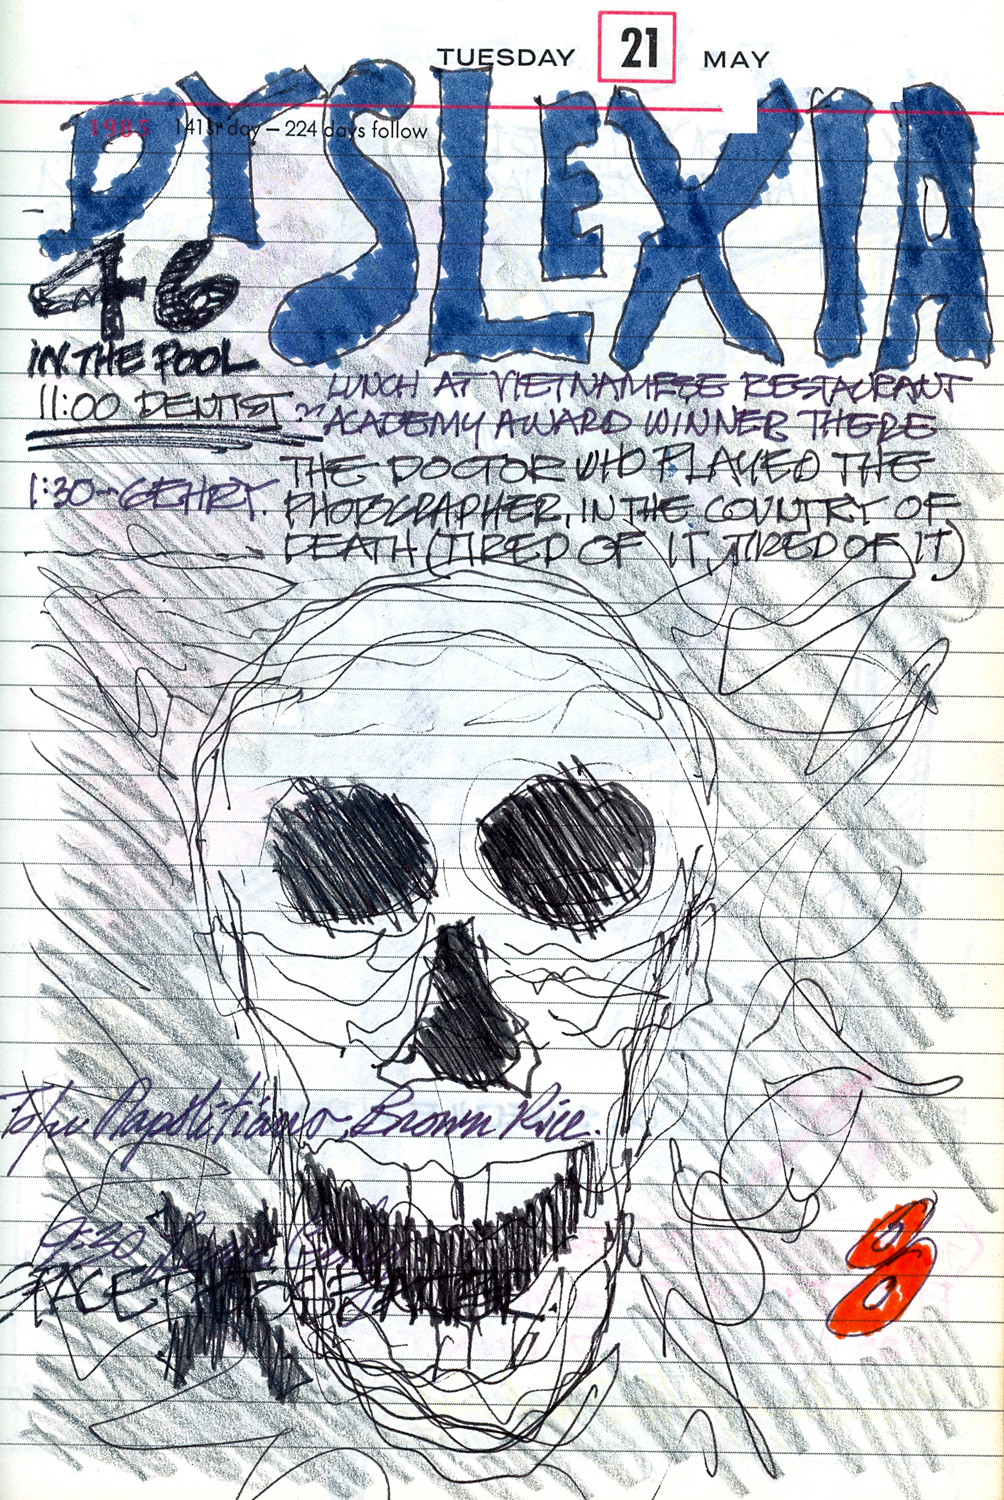 TUESDAY 21 MAY
1985 141st day – 224 days follow
DYSLEXIA
46
IN THE POOL
11:00 DENTIST
LUNCH AT VIETNAMESE RESTAURANT
ACADEMY AWARD WINNER THERE
THE DOCTOR WHO PLAYED THE
1:30–GEHRY.
PHOTOGRAPHER, IN THE COUNTRY OF
DEATH (TIRED OF IT, TIRED OF IT)
Tofu Napolitiano, Brown Rice.
9:30
8